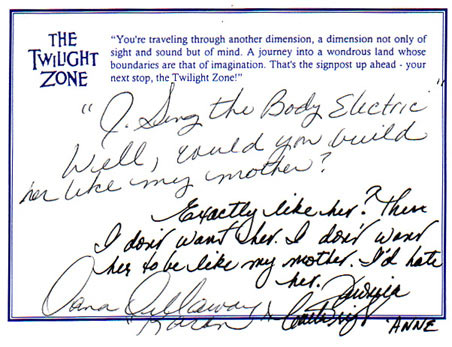 THE
TWILIGHT
ZONE
"You're traveling through another dimension, a dimension not only of
sight and sound but of mind. A journey into a wondrous land whose
boundaries are that of imagination. That's the signpost up ahead - your
next stop, the Twilight Zone!"
"I. Sing the Body Electric"
Well, would you build
her like my mother?
Exactly like her? Then
I don't want her. I don't want
her to be like my mother. I'd hate
her. Veronica
Dana Dillaway
Karen
Cartwright
"ANNE